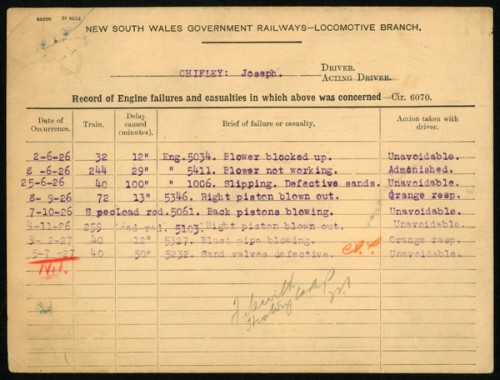 NEW SOUTH WALES GOVERNMENT RAILWAYS—LOCOMOTIVE BRANCH.
CHIFLEY: Joseph. DRIVER.
ACTING DRIVER.
Record of Engine failures and casualties in which above was concerned—Cir. 6070.
Date of Occurrence. Train. Delay caused (minutes). Brief of failure or casualty. Action taken with driver.
2-6-26 32 12" Eng.5034. Blower blocked up. Unavoidable.
8-6-26 244 29" " 5411. Blower not working. Admonished.
25-6-26 40 100" " 1006. Slipping. Defective sands. Unavoidable.
8-9-26 72 13" 5346. Right piston blown out. Orange resp.
7-10-26 S peoload red.5061. Back pistons blowing. Unavoidable.
4-11-26 256 red. 5103. Right piston blown out. Unavoidable.
9-2-27 40 12" 5327. Blast pipe blowing. Orange resp.
5-7-27 40 50" 5232. Sand valves defective. Unavoidable.
Nil.
File with